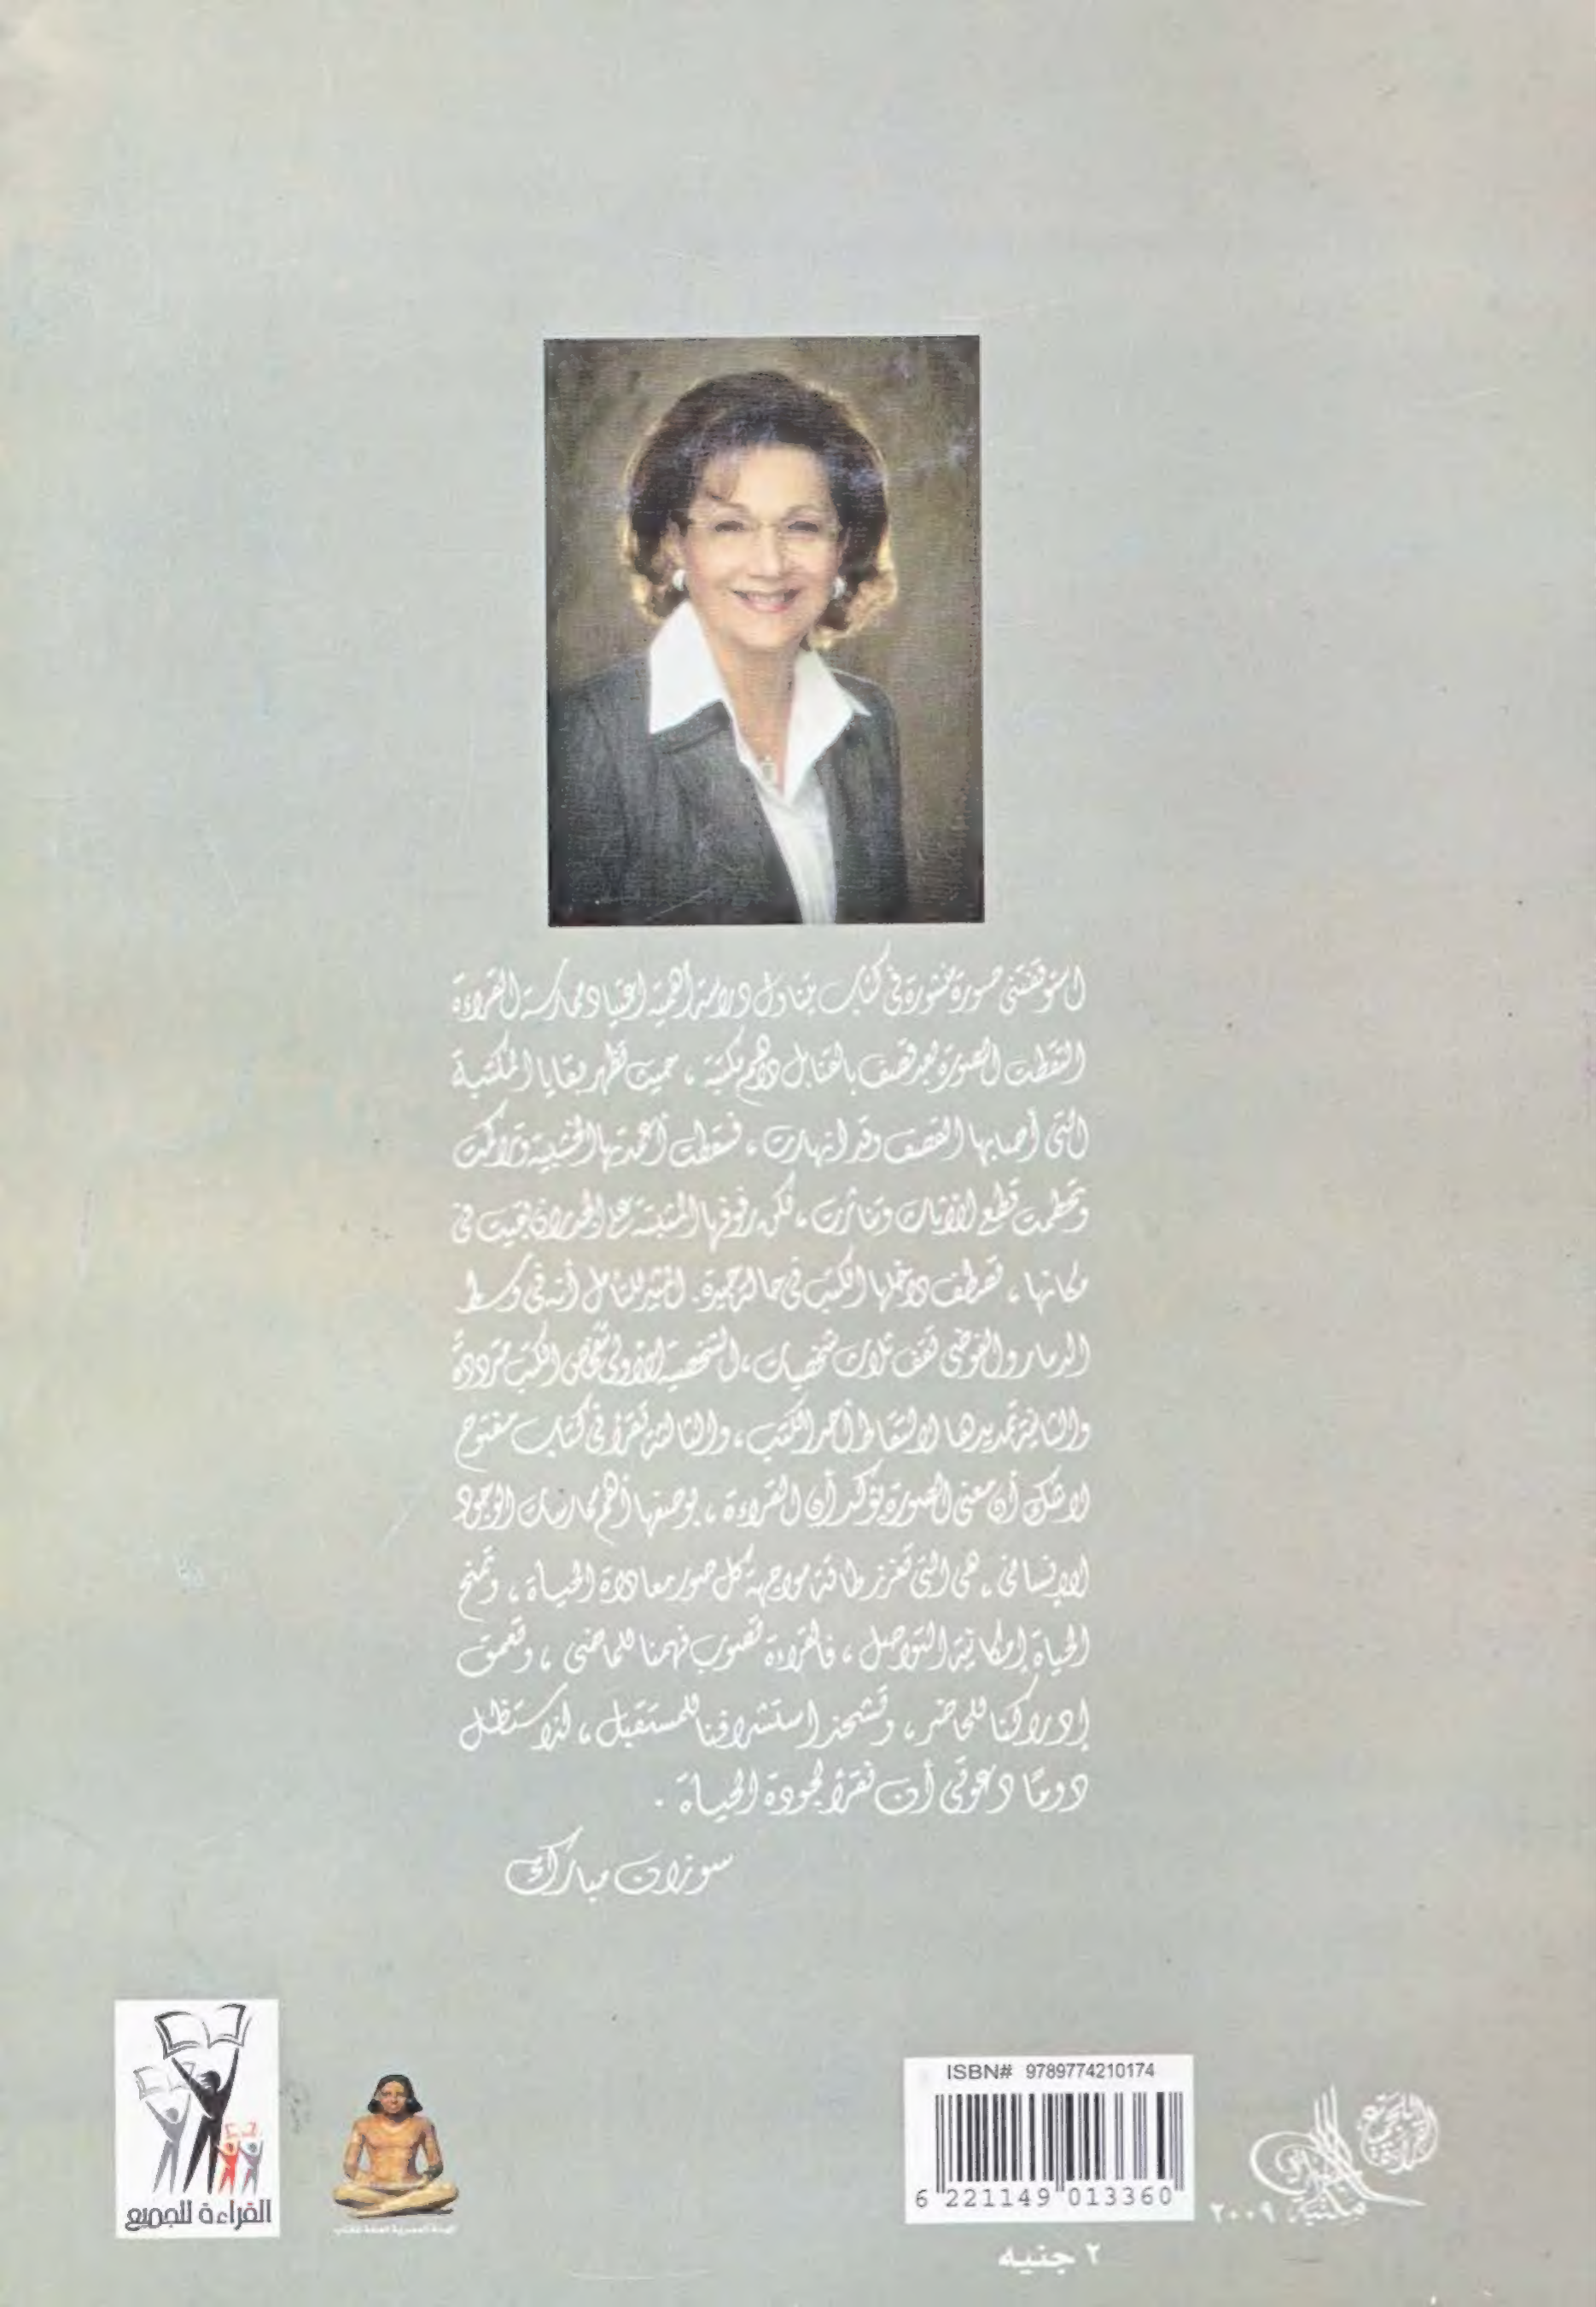 استوقفتنى صورة منشورة فى كتاب يتناول دراسة أهمية اعتياد ممارسة القراءة
التقطت الصورة بعد قصف بالقنابل داهم مكتبة ، حيث تظهر بقايا المكتبة
التى أصابها القصف وقد انهارت ، فسقطت أعمدتها الخشبية وتراكمت
وتحطمت قطع الأثاث وتناثرت ، لكن رفوفها المثبتة على الجدران بقيت فى
مكانها ، تصطف داخلها الكتب فى حالة جيدة. المثير للتأمل أنه فى وسط
الدمار والفوضى تقف ثلاث شخصيات ، الشخصية الأولى تتفحص الكتب مترددة
والثانية تمد يدها لالتقاط أحد الكتب ، والثالثة تقرأ فى كتاب مفتوح
لاشك أن معنى الصورة يؤكد أن القراءة ، بوصفها أهم ممارسات الوجود
الإنسانى ، هى التى تعزز طاقة مواجهة كل صور معاداة الحياة ، وتمنح
الحياة إمكانية التواصل ، فالقراءة تصوب فهمنا للماضى ، وتعمق
إدراكنا للحاضر ، وتشحذ استشرافنا للمستقبل ، لذا ستظل
دومًا دعوتى أن نقرأ لجودة الحياة .
سوزان مبارك
القراءة للجميع
الهيئة المصرية العامة للكتاب
ISBN# 9789774210174
6 221149 013360
٢ جنيه
٢٠٠٩